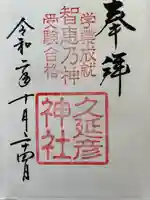 奉拝
学業成就
智恵乃神
受験合格
久延彦
神社
令和二年十月二十四日